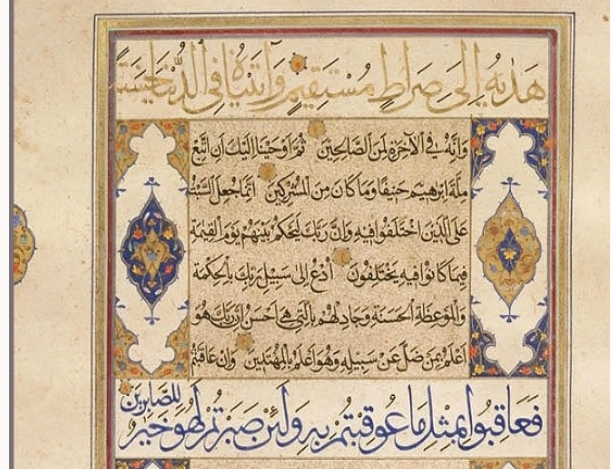 هَدٰيهُ إِلَىٰ صِرَاطٍ مُسْتَقِيمٍ وَآتَيْنَاهُ فِي الدُّنْيَا حَسَنَةً
وَإِنَّهُ فِي الْآخِرَةِ لَمِنَ الصَّالِحِينَ ثُمَّ أَوْحَيْنَا إِلَيْكَ أَنِ اتَّبِعْ
مِلَّةَ إِبْرٰهِيمَ حَنِيفًا وَمَا كَانَ مِنَ الْمُشْرِكِينَ إِنَّمَا جُعِلَ السَّبْتُ
عَلَى الَّذِينَ اخْتَلَفُوا فِيهِ وَإِنَّ رَبَّكَ لَيَحْكُمُ بَيْنَهُمْ يَوْمَ الْقِيٰمَةِ
فِيمَا كَانُوا فِيهِ يَخْتَلِفُونَ أُدْعُ إِلَىٰ سَبِيلِ رَبِّكَ بِالْحِكْمَةِ
وَالْمَوْعِظَةِ الْحَسَنَةِ وَجَادِلْهُمْ بِالَّتِي هِيَ أَحْسَنُ إِنَّ رَبَّكَ هُوَ
أَعْلَمُ بِمَنْ ضَلَّ عَنْ سَبِيلِهِ وَهُوَ أَعْلَمُ بِالْمُهْتَدِينَ وَإِنْ عَاقَبْتُمْ
فَعَاقِبُوا بِمِثْلِ مَا عُوقِبْتُمْ بِهِ وَلَئِنْ صَبَرْتُمْ لَهُوَ خَيْرٌ لِلصَّابِرِينَ